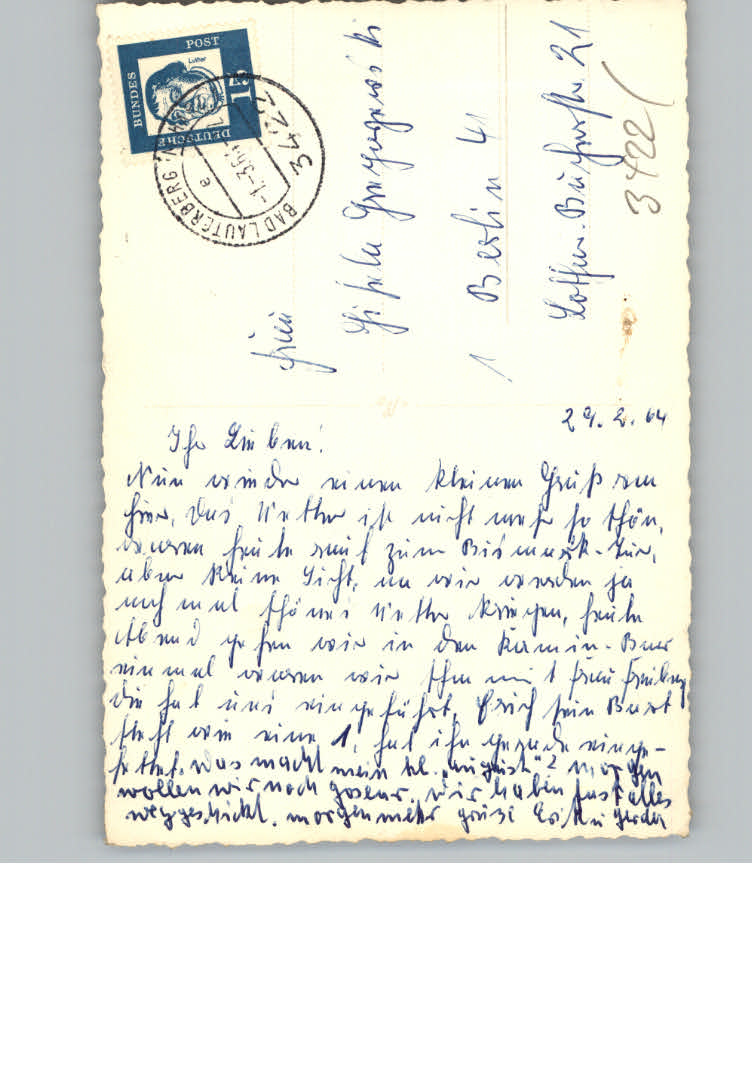 DEUTSCHE
BUNDES
POST
Luther
15
BAD LAUTERBERG
3422
e
-1.-3.64
Frau
Gisela
1 Berlin 41
Lothar-Bucherstr. 21
3422
29.2.64
Ihr Lieben!
Nun wieder einen kleinen Gruß von
hier, das Wetter ist nicht mehr so schön,
waren heute rauf zum Bismark-Tur,
aber keine Sicht, na wir werden ja
noch mal schönes Wetter kriegen, heute
Abend gehen wir in den Kamin-Bar
einmal waren wir schon mit Frau
die hat uns eingeführt, Erich sein Bart
steht wie eine 1, hat ihn gerade einge-
fettet. Was macht mein kl. morgen
wollen wir nach goslar, wir haben fast alles
weggeschickt. morgen mehr grüße